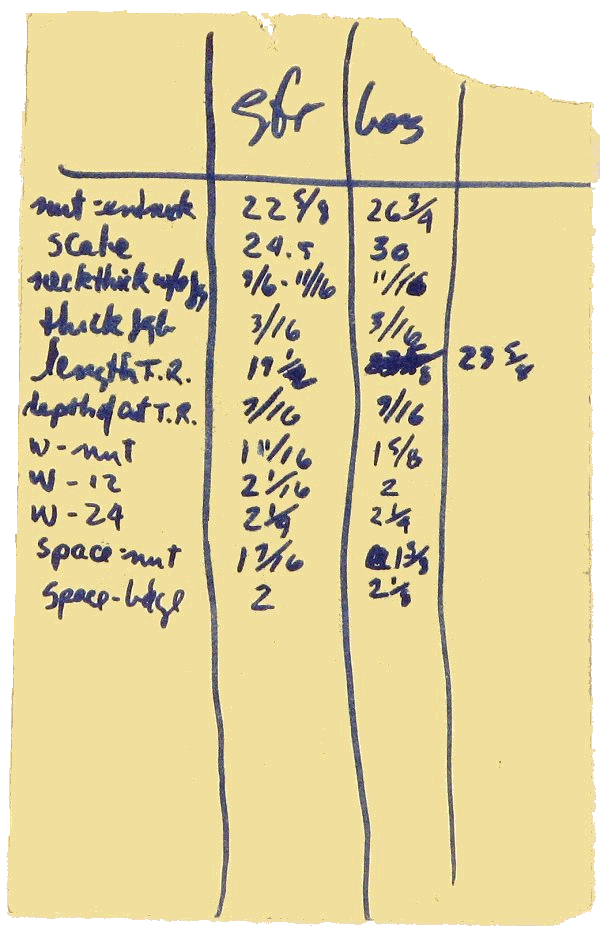 gtr bass
nut-end neck 22 5/8 26 3/4
scale 24.5 30
neck thick w/o fgb 9/16 - 11/16 11/16
thick fgb 3/16 3/16
length T.R. 19 1/2 23 5/8
depth of at T.R. 7/16 7/16
W-nut 1 11/16 1 5/8
W-12 2 1/16 2
W-24 2 1/4 2 1/4
space-nut 1 7/16 1 3/8
space-bdge 2 2 1/8